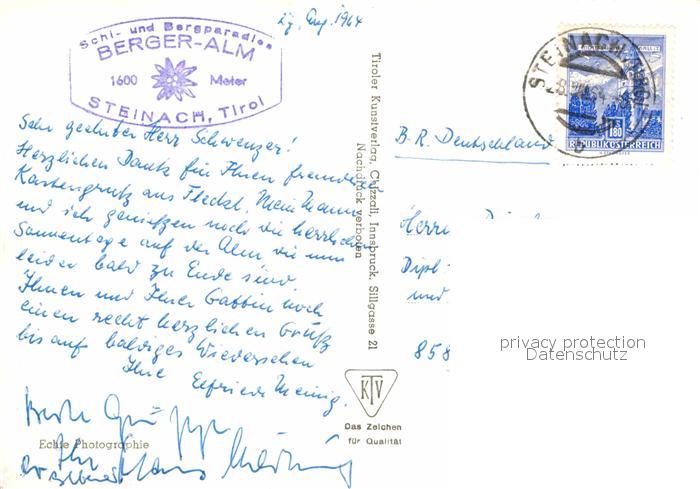 Aug. 1964
Schi- und Bergparadies
BERGER-ALM
1600 Meter
STEINACH, Tirol
Sehr geehrter Herr Schwenzer!
Herzlichen Dank für Ihren
Kartengruß aus Fleckl. Mein Mann
und ich genießen noch die herrlichen
Sonnentage auf der Alm die nun
leider bald zu Ende sind.
Ihnen und Ihrer Gattin noch
einen recht herzlichen Gruß
bis auf baldiges Wiedersehen
Ihre Elfriede
Beste Grüße
Ihr Klaus
Echte Photographie
Tiroler Kunstverlag, Chizzali, Innsbruck, Sillgasse 21
Nachdruck verboten
KTV
Das Zeichen
für Qualität
STEINACH
S 1.80
REPUBLIK ÖSTERREICH
B.R. Deutschland
Herrn
Dipl-
und
858
privacy protection
Datenschutz